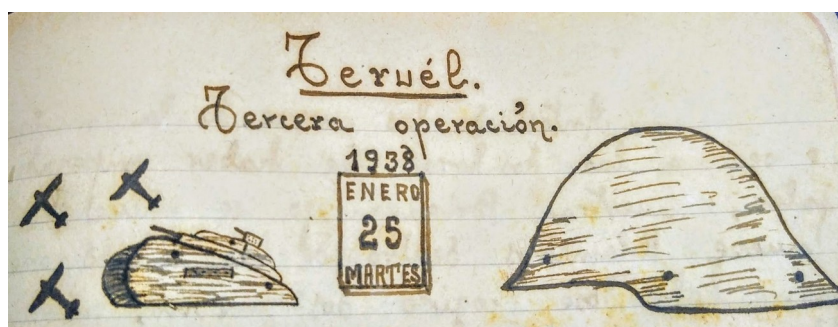 Teruél.
Tercera operación.
1938
ENERO
25
MARTES